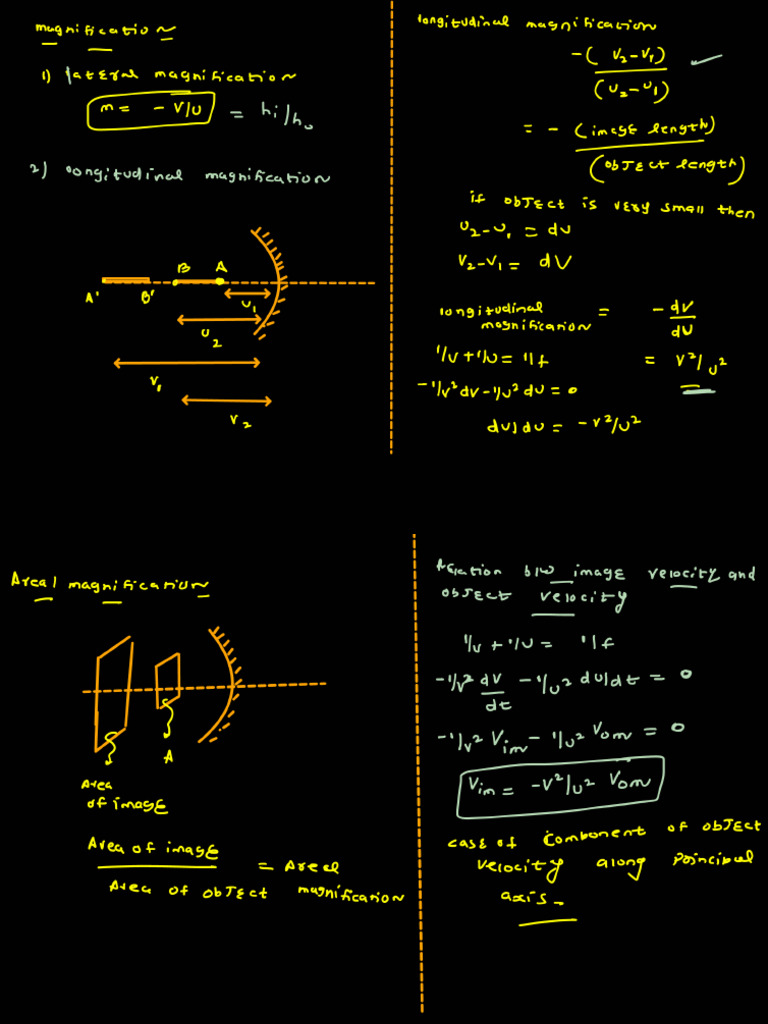 magnification
1) lateral magnification
m = - V/U = hi/ho
2) longitudinal magnification
B A
A' B'
u1
u2
v1
v2
longitudinal magnification
-(V2-V1)
(U2-U1)
= - (image length)
(object length)
if object is very small then
U2-U1 = du
V2-V1 = dV
longitudinal magnification = - dV/dU
1/V + 1/U = 1/f = V²/U²
-1/V² dV - 1/U² dU = 0
dU/dU = -V²/U²
Areal magnification
A
Area of image
Area of image
Area of object
= Areal magnification
Relation b/w image velocity and
object velocity
1/V + 1/U = 1/f
-1/V² dV/dt - 1/U² dU/dt = 0
-1/V² Vim - 1/U² Vom = 0
Vim = -V²/U² Vom
case of component of object
velocity along principal
axis.